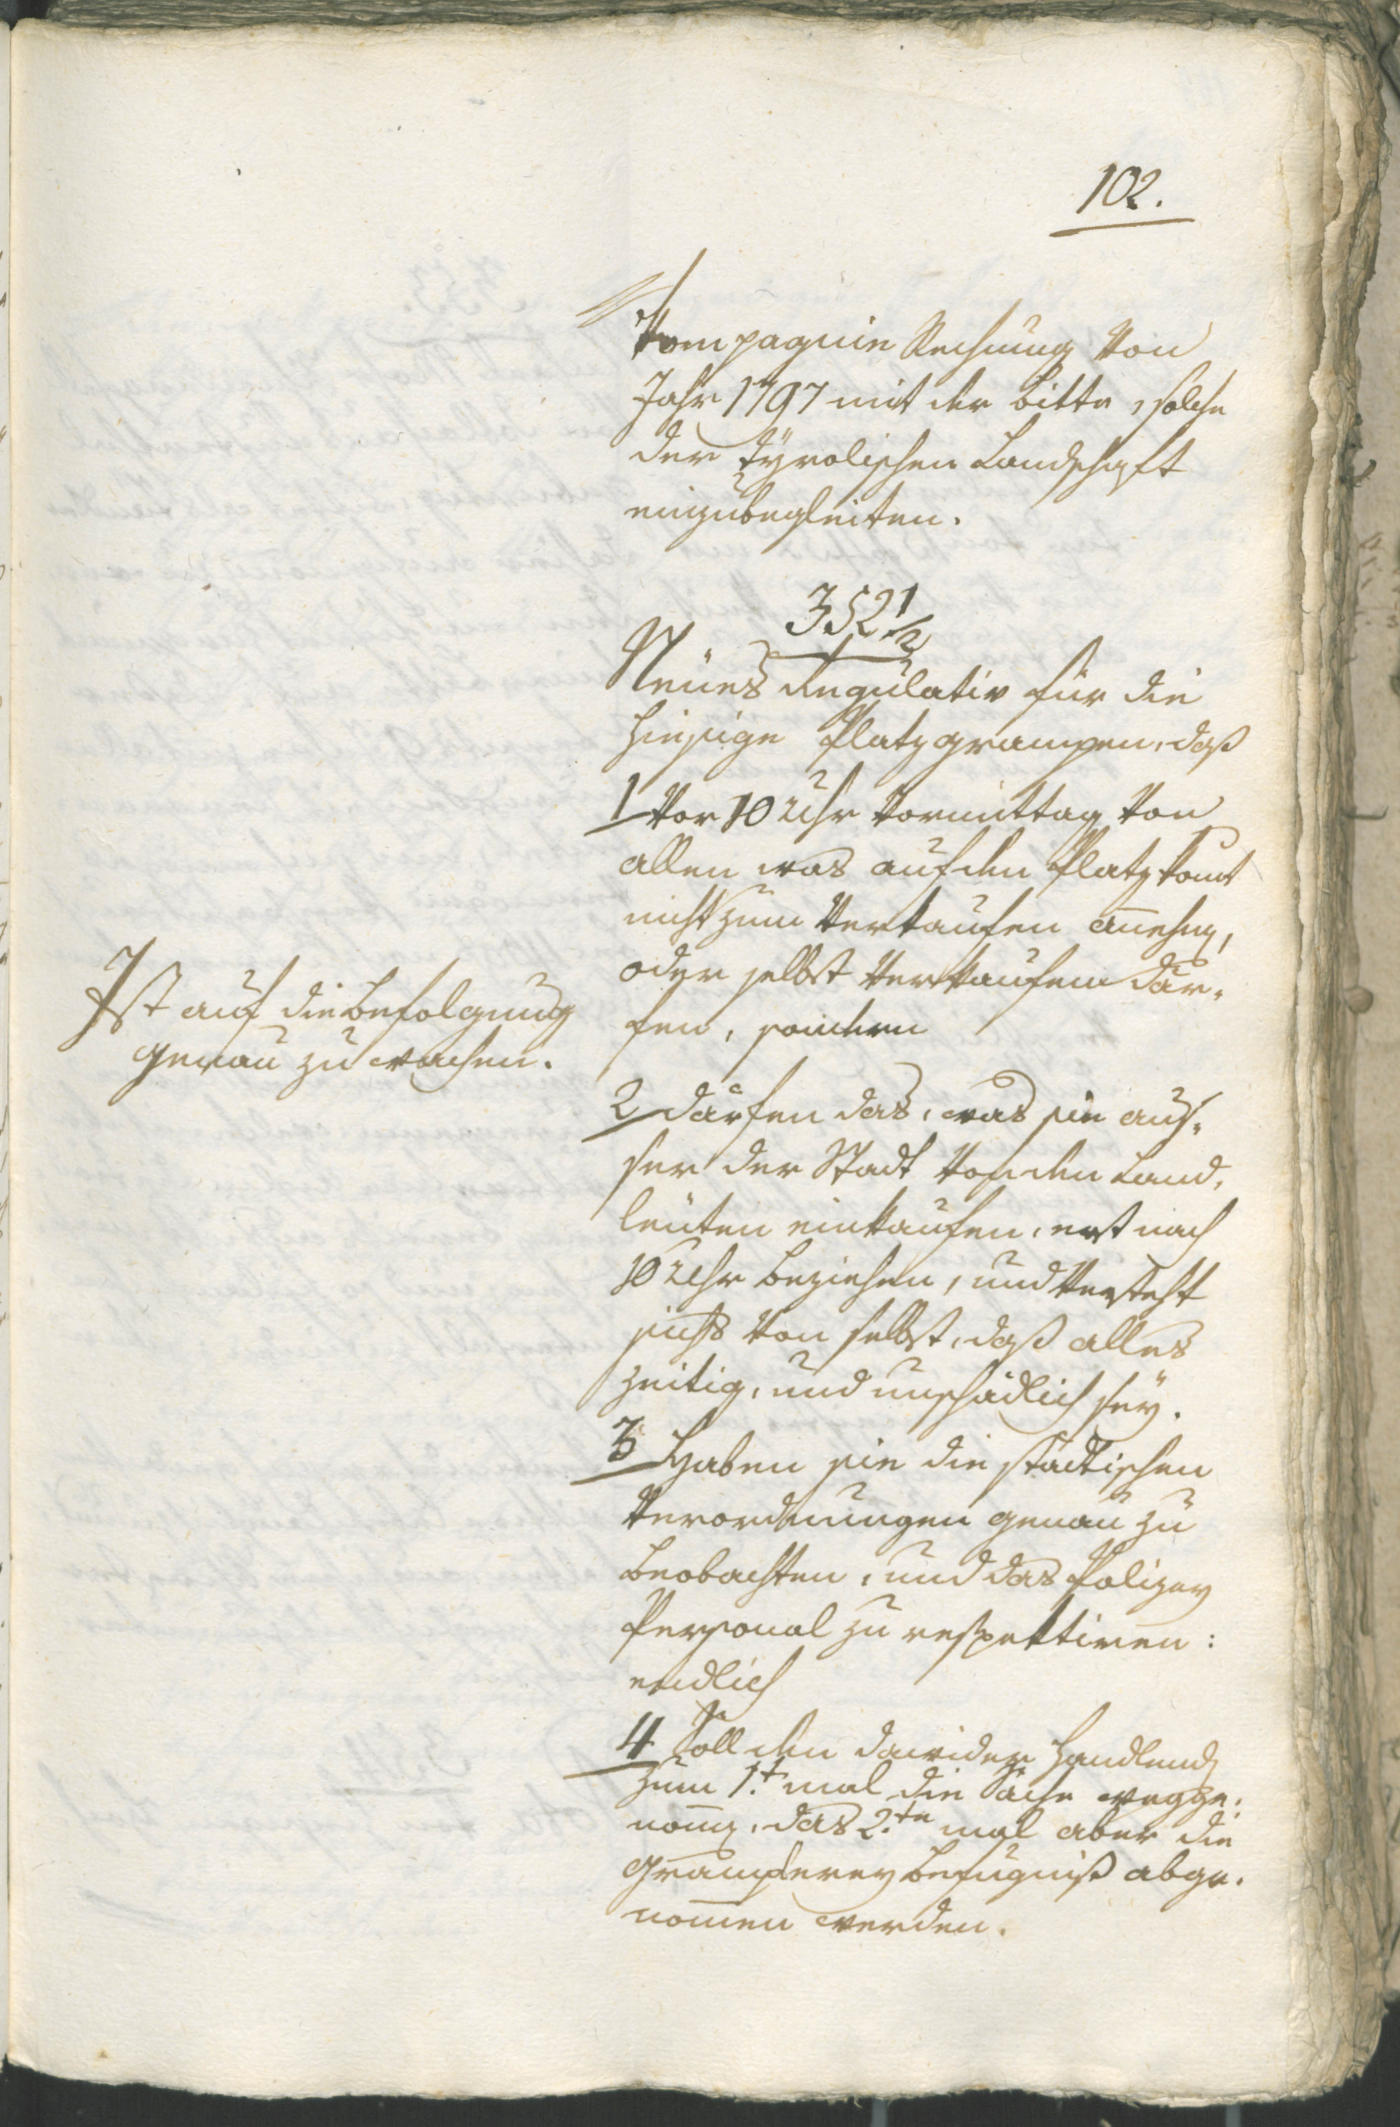 102.
Kompagnie Rechnung von
Jahr 1797 mit der Bitte, solche
der tÿrolischen Landschaft
einzubegleiten.
352 1/2
Neües Regulativ für die
hiesige Platzgrampen, daß
1 Vor 10 Uhr Vormittag von
allen was auf den Platz komt
nicht zum Verkaufen anehmen,
oder selbst verkaufen dar¬
fen, sondern
Ist auf die Befolgung
genau zu wachen.
2 därfen das, was sie aus¬
ser der Stadt von den Land¬
leüten einkaufen, erst nach
10 Uhr beziehen, und versteht
sichs von selbst, daß alles
zeitig, und unschädlich seÿ.
3 Haben sie die städtischen
Verordnungen genau zu
beobachten, und das Polizey
Personal zu respektiren:
endlich
4 Soll den dawider Handlenden
zum 1.t mal die Sache wegge¬
nommen, das 2.te mal aber die
Gramperey Befugniß abge¬
nomen werden.